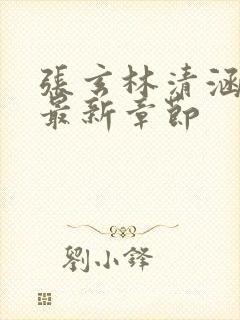 張玄林清涵
最新章節
劉小鋒